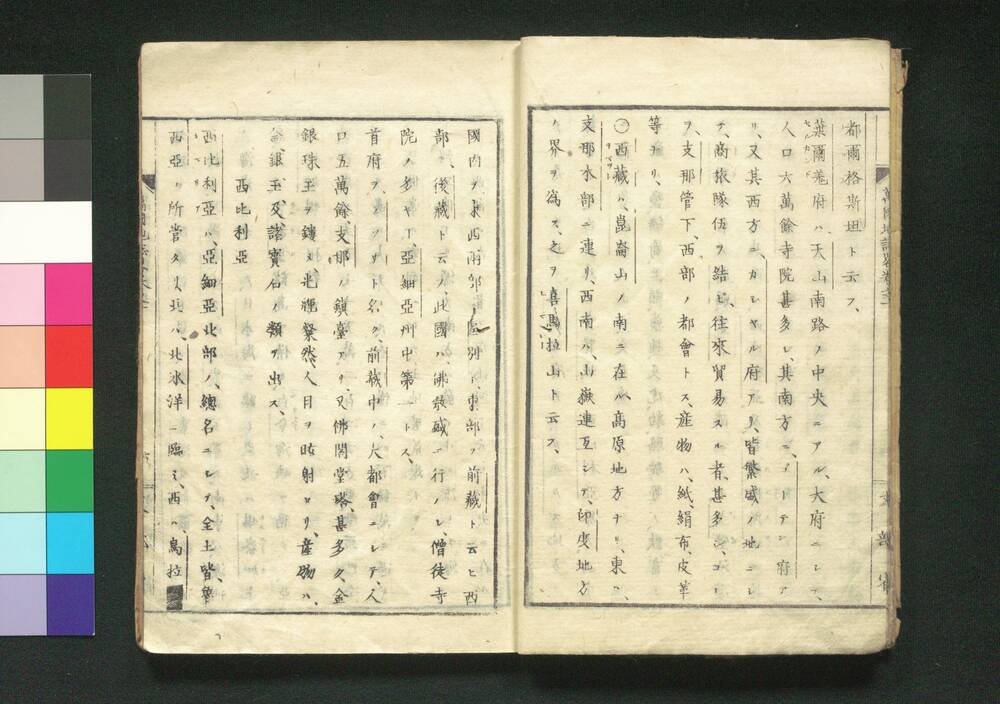 都爾格斯坦ト云フ、
葉爾羗府ハ天山南路ノ中央ニアル、大府ニシテ、
人口六萬餘寺院甚多シ、其南方ニ、府ア
リ、又其西方ニ、カシヤル府アリ、皆繁盛ノ地ニシ
テ、商旅隊伍ヲ結ビ、往來貿易スル者、甚多シ、コレ
ヲ、支那管下、西部ノ都會トス、産物ハ、紙、絹布、皮革
等ナリ、
○西藏ハ、崑崙山ノ南ニ在ル、高原地方ナリ、東ハ、
支那本部ニ連リ、西南ハ、山嶽連互シテ、印度地方
ノ界ヲ爲ス、之ヲ喜馬拉山ト云フ、
國内ヲ東西兩部ニ區別シ、東部ヲ前藏ト云ヒ西
部ヲ、後藏ト云フ、此國ハ佛教盛ニ行ハレ、僧徒寺
院ノ多キ丁、亞細亞州中第一トス、
首府ヲ、ト名ク、前藏中ノ、大都會ニシテ、人
口五萬餘、支那ノ鎮臺アリ、又佛閣堂塔、甚多ク、金
銀珠玉ヲ鏤メ、光裡粲然、人目ヲ眩射セリ、産物ハ、
金、銀、玉、及諸寶石ノ類ヲ出ス、
西比利亞
西比利亞ハ、亞細亞北部ノ、總名ニシテ、全土皆、魯
西亞ノ所管タリ、北ハ、北冰洋ニ臨ミ、西ハ、烏拉